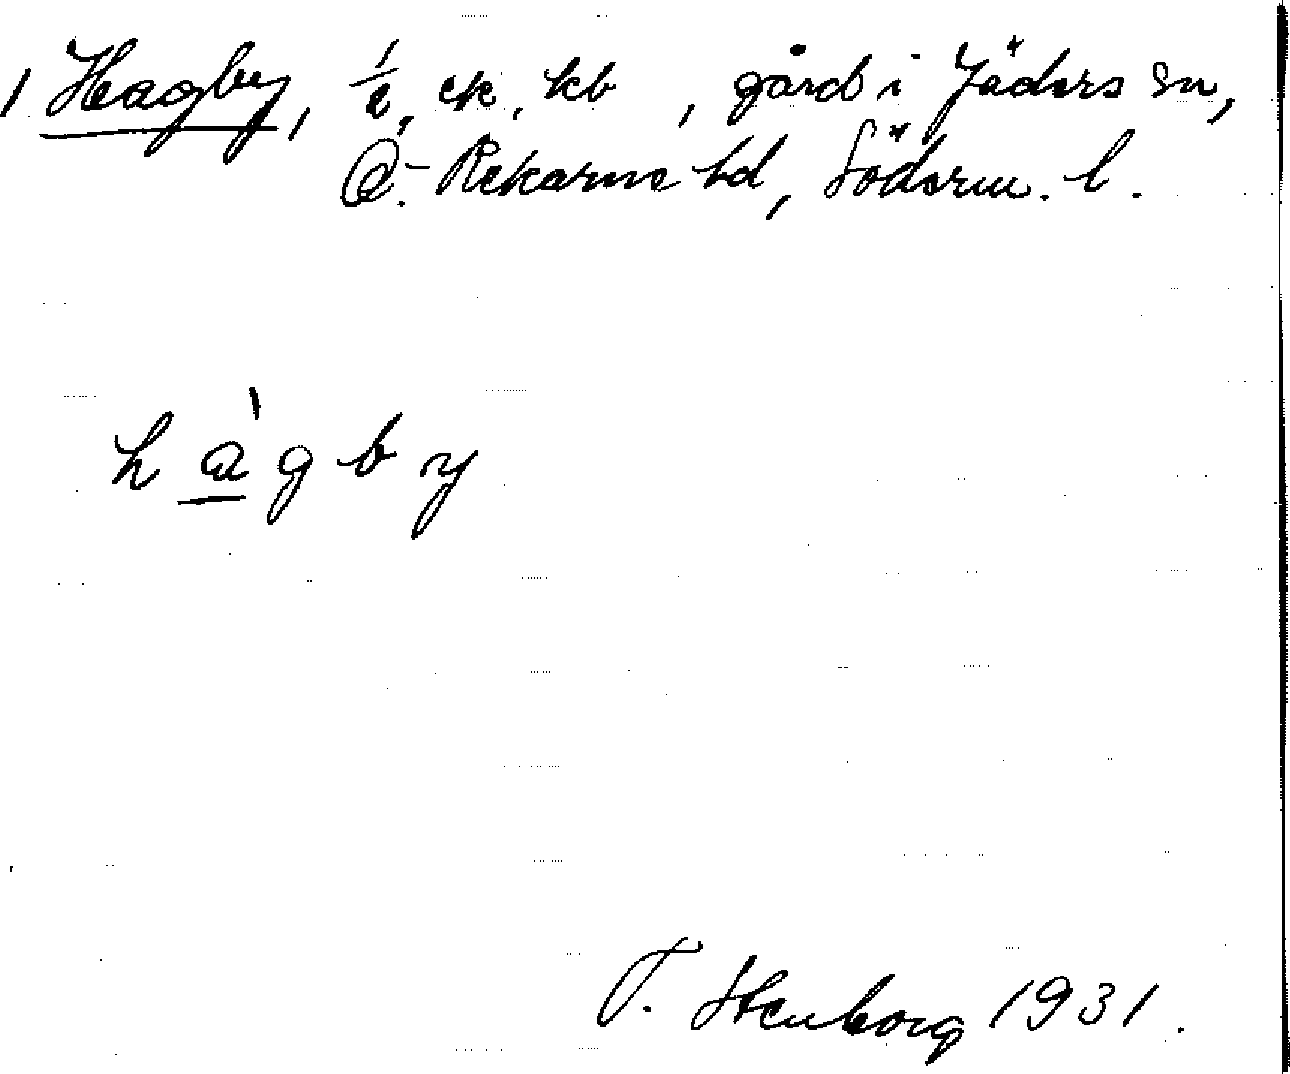 1 Hagby, 1/e, ek, kb, gård i Jäders sn,
Ö. Rekarne hd, Söderm. l.
hàgby
T. Stenborg 1931.